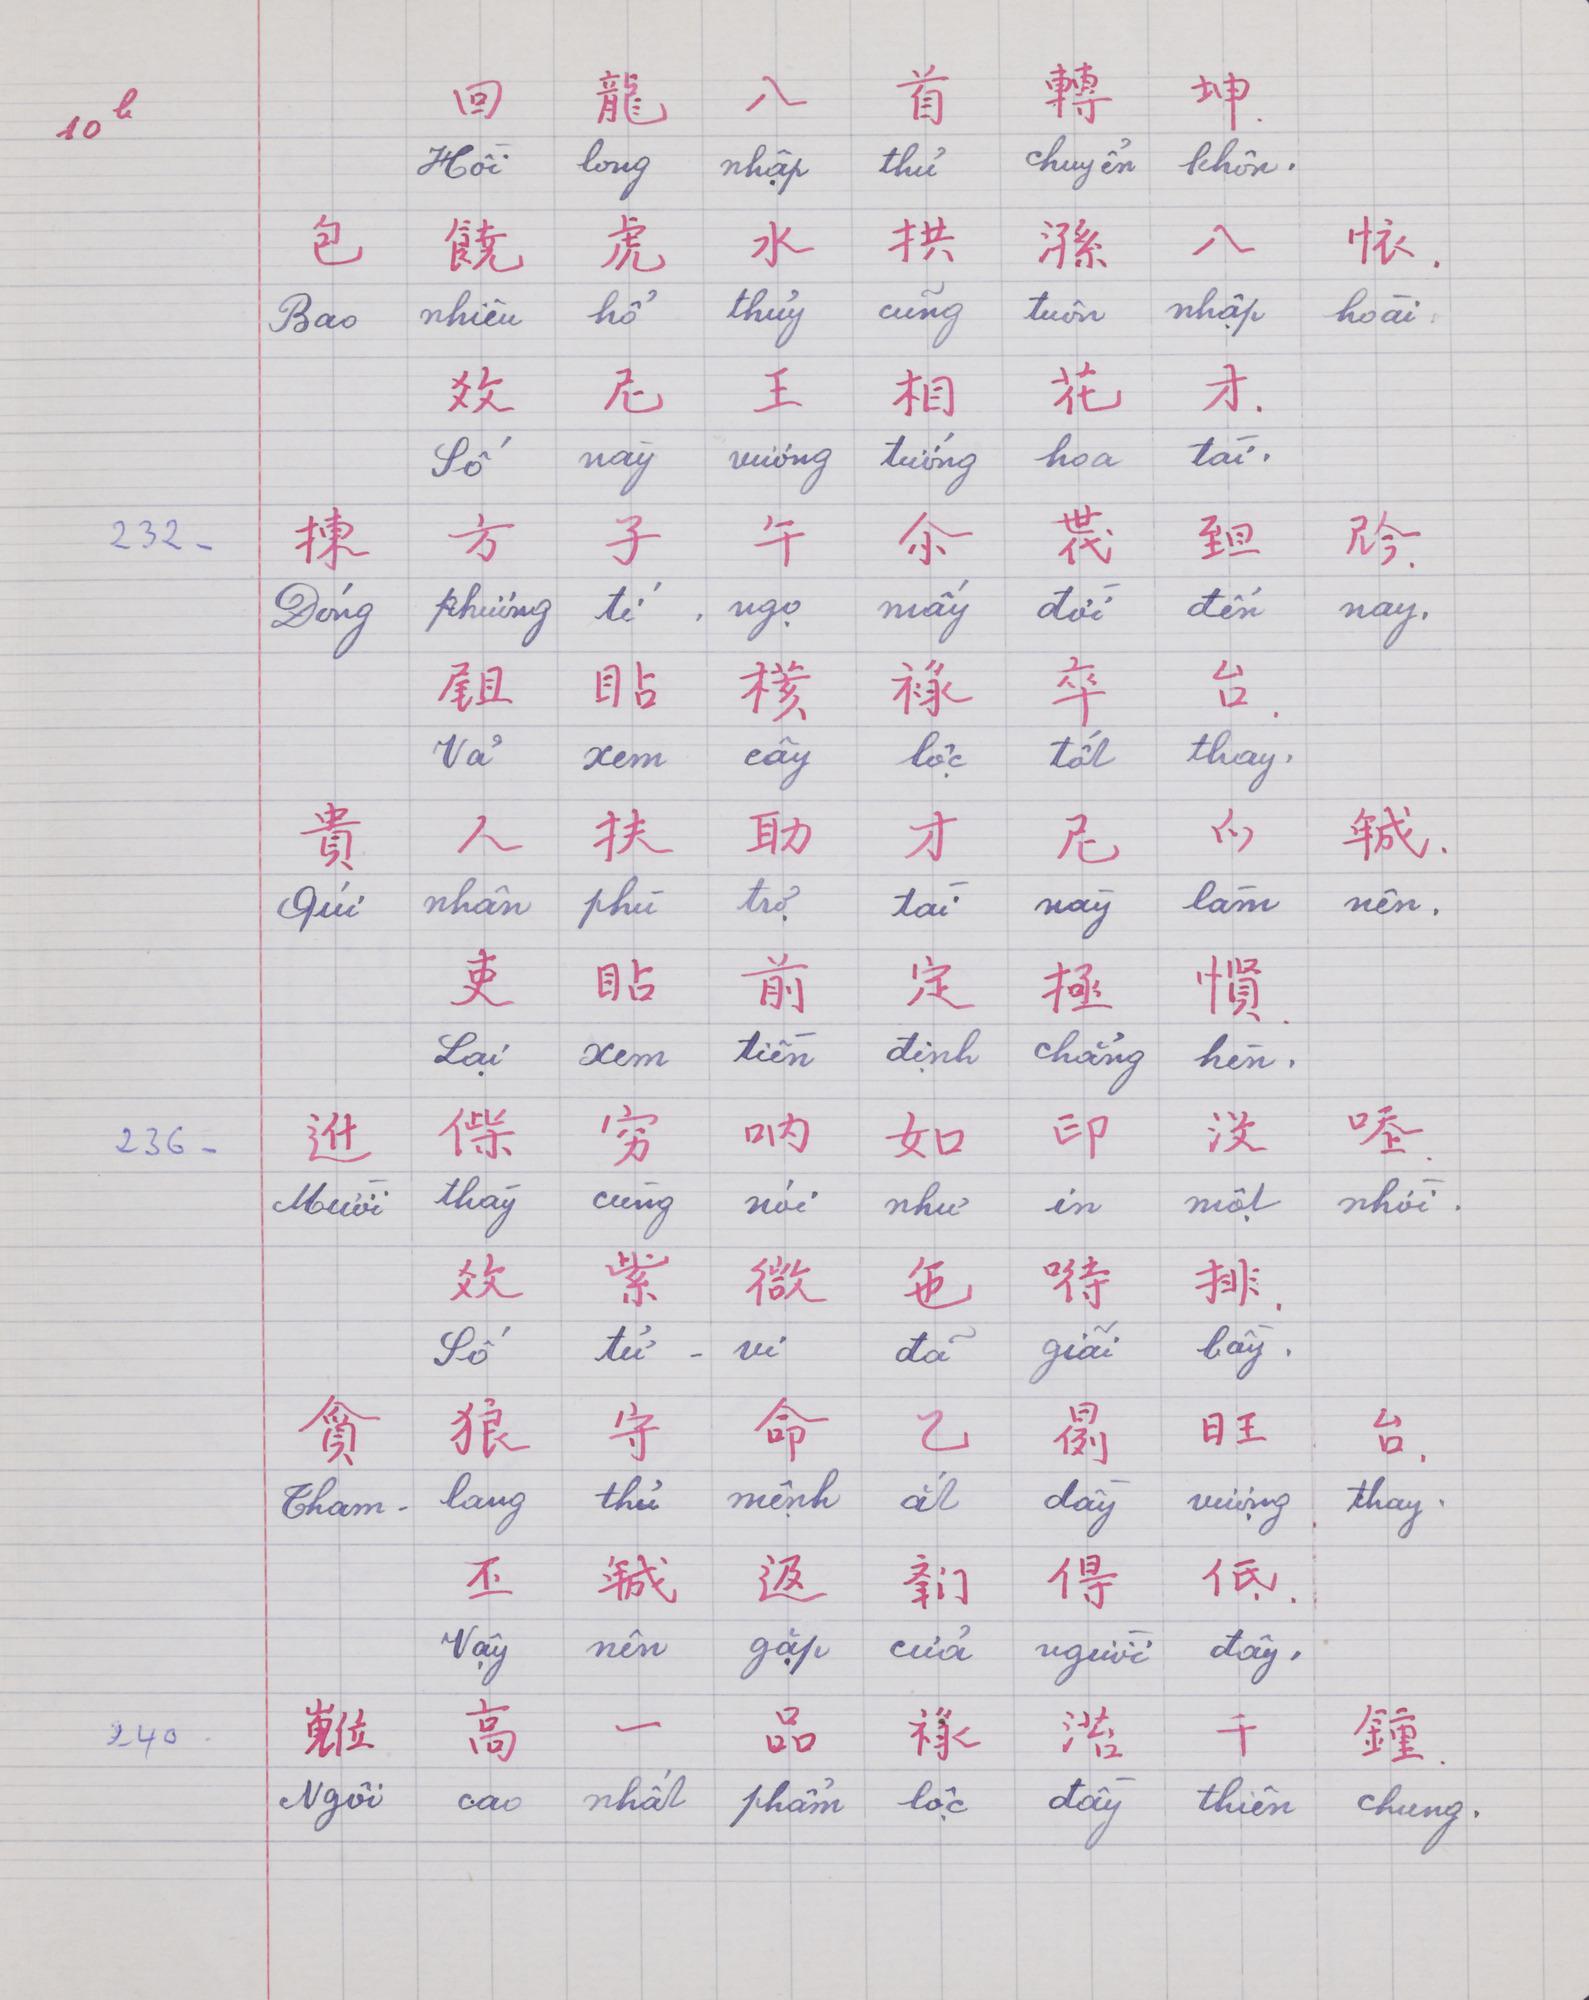 10b
回 龍 入 首 轉 坤.
Hồi long nhập thủ chuyển khôn.
包 饒 虎 水 拱 㵋 入 怀.
Bao nhiêu hổ thủy cũng tuôn nhập hoài.
效 尼 王 相 花 才.
Số này vương tướng hoa tài.
232 - 揀 方 子 午 尒 𠁀 𦤾 𫢩.
Dóng phương tí, ngọ mấy đời đến nay.
𡲤 貼 核 祿 卒 台.
Vả xem cây lộc tốt thay.
貴 人 扶 助 才 尼 𫜵 𢧚.
Quí nhân phù trợ tài này làm nên.
吏 貼 前 定 極 慣.
Lại xem tiền định chẳng hèn.
236 - 𨑮 偨 穷 吶 如 印 没 𠰃.
Mười thầy cùng nói như in một nhời.
效 紫 微 㐌 𠶓 排.
Số tử - vi đã giãi bầy.
貪 狼 守 命 乙 𠫅 旺 台.
Tham - lang thủ mệnh ắt dầy vượng thay.
丕 𢧚 返 𧶮 得 低.
Vậy nên gặp cuả người đây.
240 𡾵 高 一 品 祿 滔 千 鍾.
Ngôi cao nhất phẩm lộc đầy thiên chung.